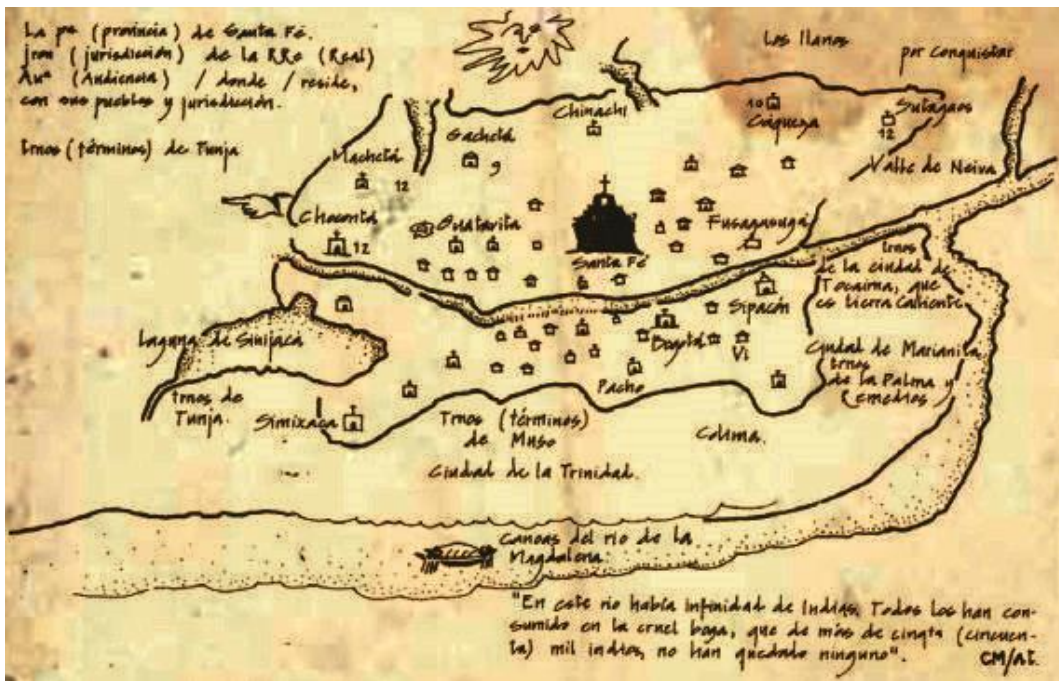 La pª (provincia) de Santa Fé.
jron (jurisdicción) de la RRe (Real)
Auª (Audiencia) / donde / reside,
con sus pueblos y jurisdicción.
trnos (términos) de Tunja
Los llanos por conquistar
Chinachi
10 Cáqueza
Sutagaos
12
Gachetá
9
Machetá
12
Valle de Neiva
Chocontá
12
Guatavita
Fusagasugá
Santa Fé
trnos
de la ciudad de
Tocaima, que
es tierra caliente
Sipacón
Laguna de Sinijaca
Bogotá
Vi
Ciudad de Marianita
trnos
de la Palma y
Remedios
Pacho
trnos de
Tunja.
Simixaca
Trnos (términos)
de Muso
Colima.
Ciudad de la Trinidad.
Canoas del río de la
Magdalena.
"En este río había infinidad de Indias. Todos los han con-
sumido en la cruel boga, que de más de cinqta (cincuen-
ta) mil indios, no han quedado ninguno".
CM/At.